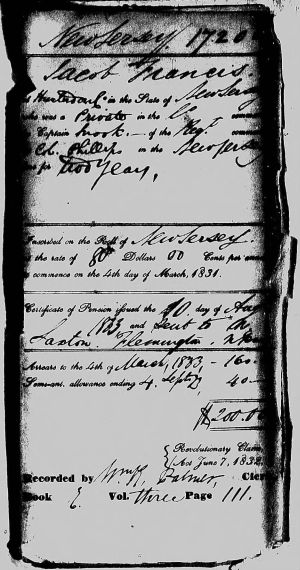 New Jersey 1720
Jacob Francis.
of Hunterdon Co in the State of New Jersey
who was a Private in the Co
Captain Mook of the Regt
Col. Phillips in the New Jersey
for two Year,
Inscribed on the Roll of New Jersey
the rate of 80 Dollars 00 Cents per
commence on the 4th day of March, 1831.
Certificate of Pension issued the 10 day of
1833, and sent to
Saxton, Flemington,
Arrears to the 4th of March, 1833, - 160
Semi-ant. allowance ending 4. Septr 40
$200.00
Revolutionary Claim,
Act June 7, 1832
Recorded by Palmer, Clerk
Book E. Vol. three Page 111.